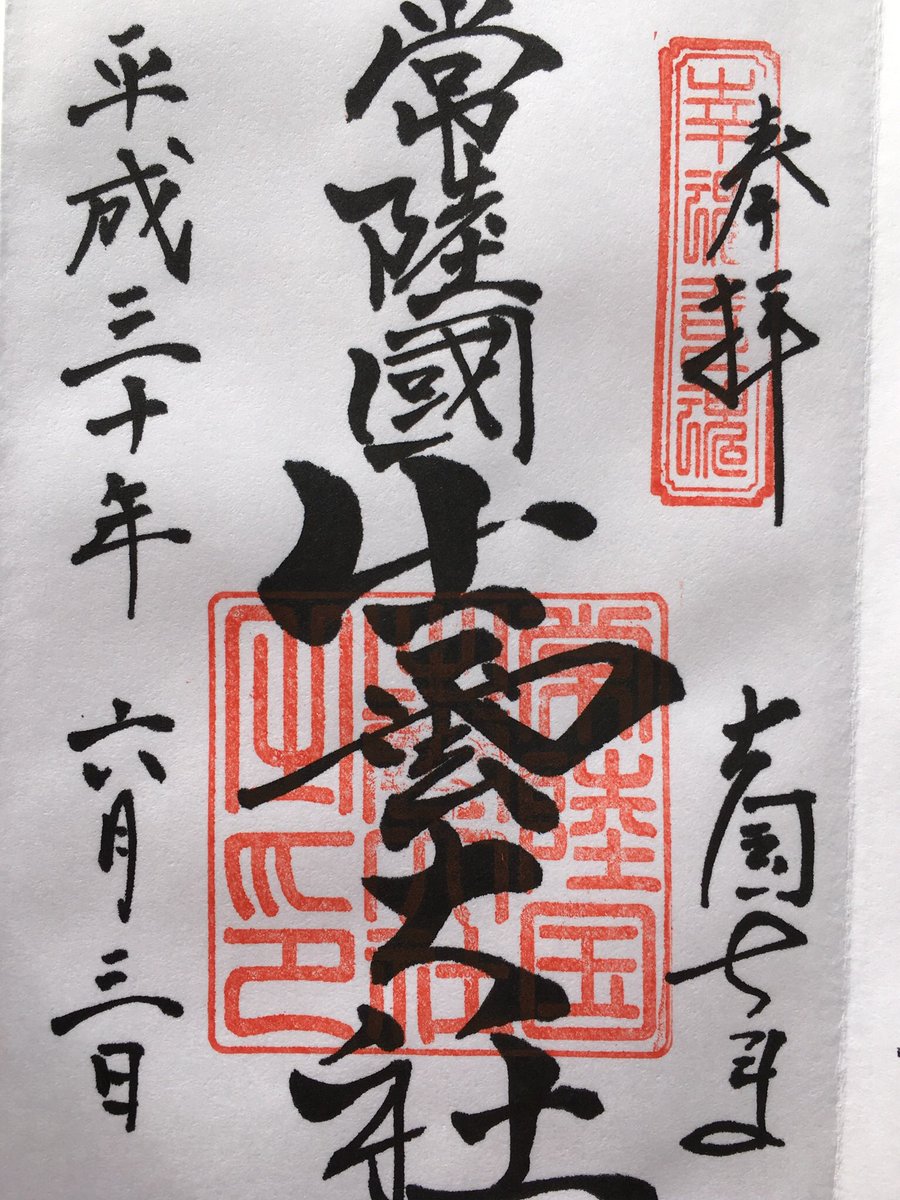 奉拝
大国さま
常陸國
出雲大社
平成三十年 六月三日
常陸国
出雲大社